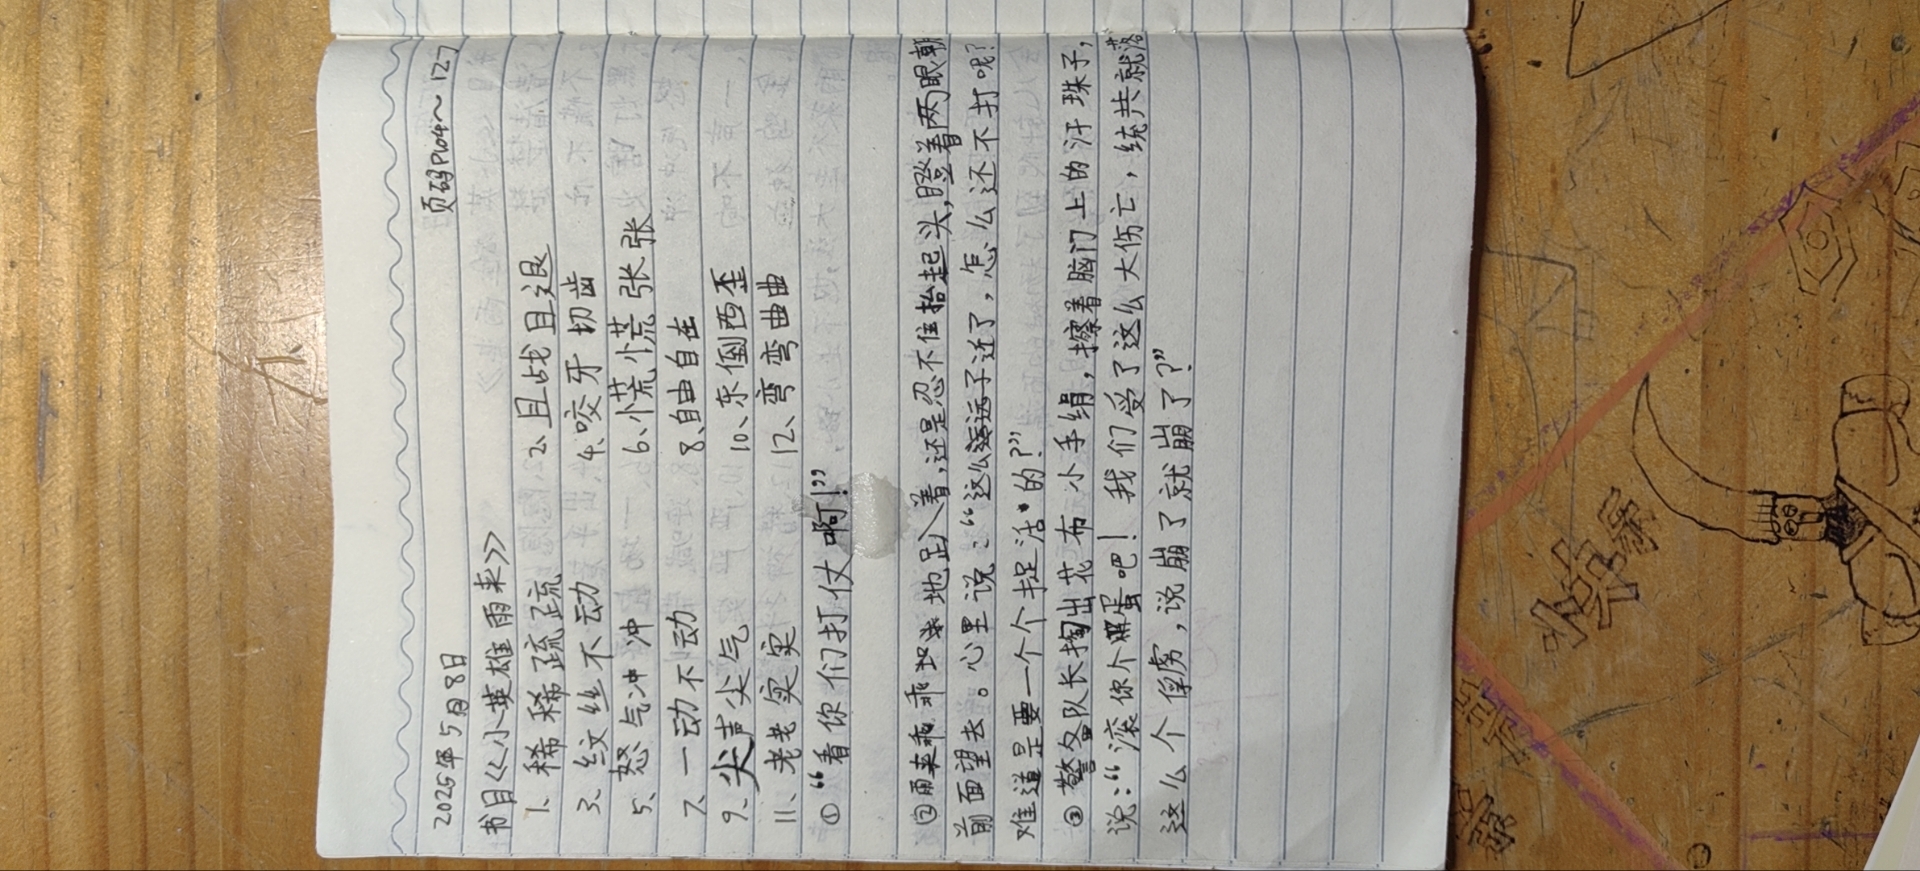 2025年5月8日 页码P104～127
书目《小英雄雨来》
1、稀稀疏疏 2、且战且退
3、纹丝不动 4、咬牙切齿
5、怒气冲冲 6、慌慌张张
7、一动不动 8、自由自在
9、尖声尖气 10、东倒西歪
11、老老实实 12、弯弯曲曲
①“看你们打仗啊!”
②雨来乖乖地趴着,还是忍不住抬起头,瞪着两眼朝
前面望去。心里说:“这么近了,怎么还不打呢?
难道是要一个个捉活的?”
③警备队长掏出花布小手绢,擦着脑门上的汗珠子,
说:“滚你个蛋吧!我们受了这么大伤亡,统共就落
这么个俘虏,说崩了就崩了?”